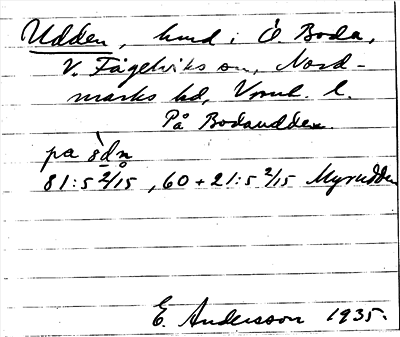 Udden, hmd i Ö. Boda,
V. Fågelviks sn, Nord-
marks hd, Vrml. l.
På Bodaudden.
pa ò̀dn̥
81:5 2/15, 60+21:5 2/15 Myrudden
E. Andersson 1935.